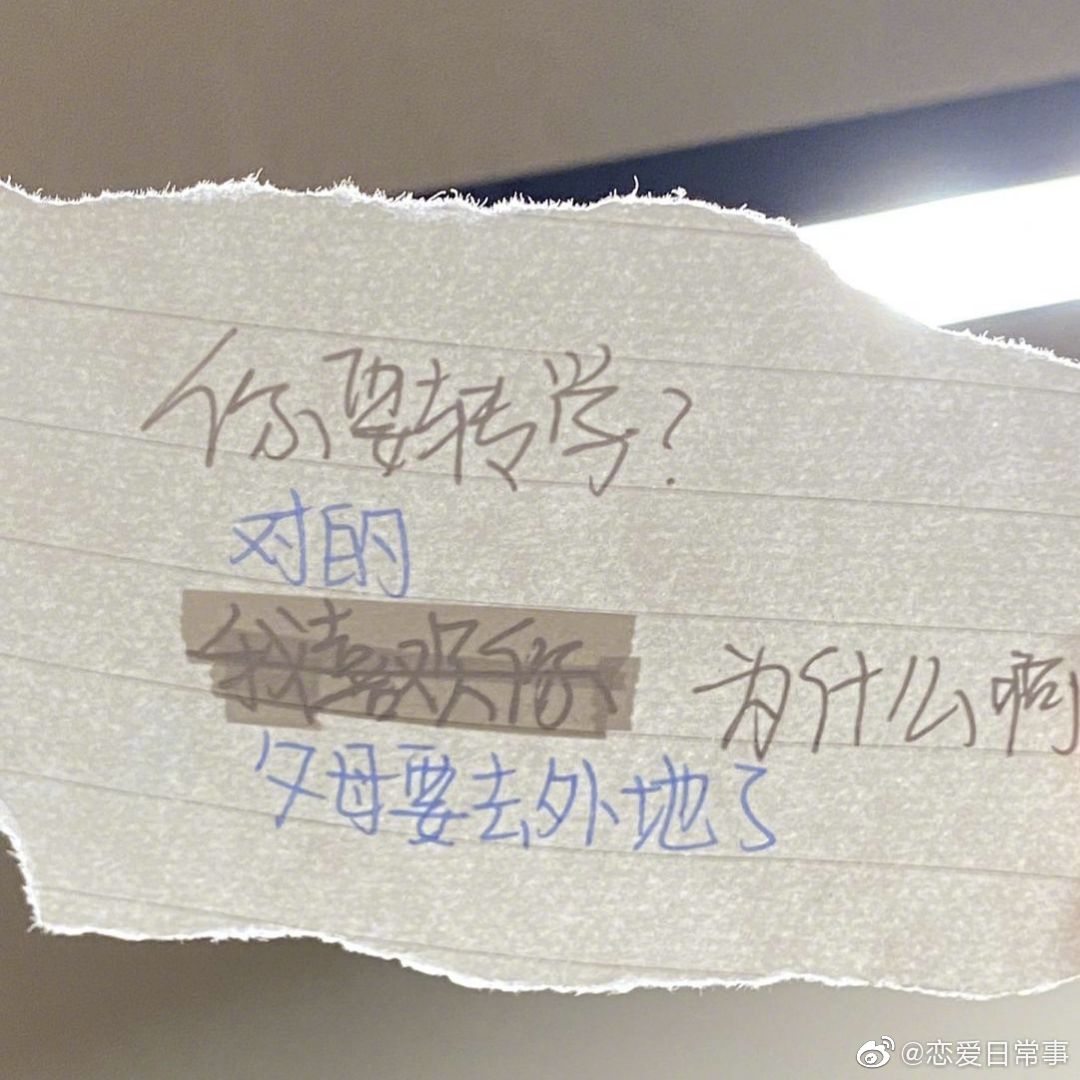 你要转学?
对的
我喜欢你 为什么啊
父母要去外地了
@恋爱日常事